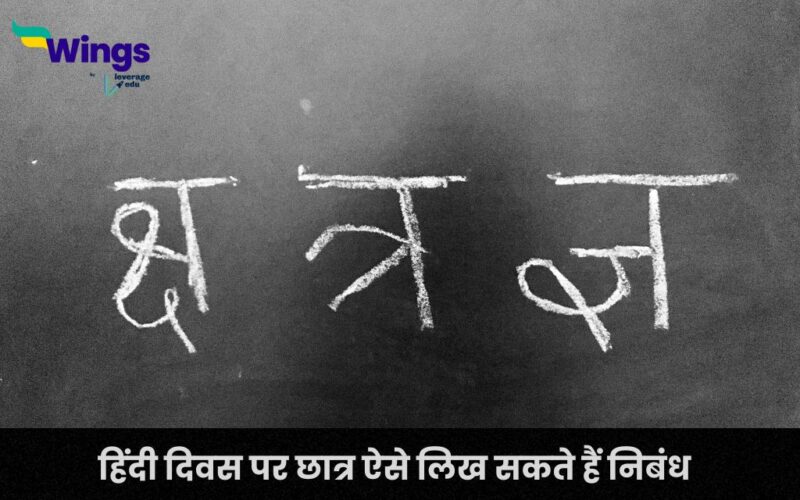 Wings
by leverage
edu
क्ष त्र ज्ञ
हिंदी दिवस पर छात्र ऐसे लिख सकते हैं निबंध